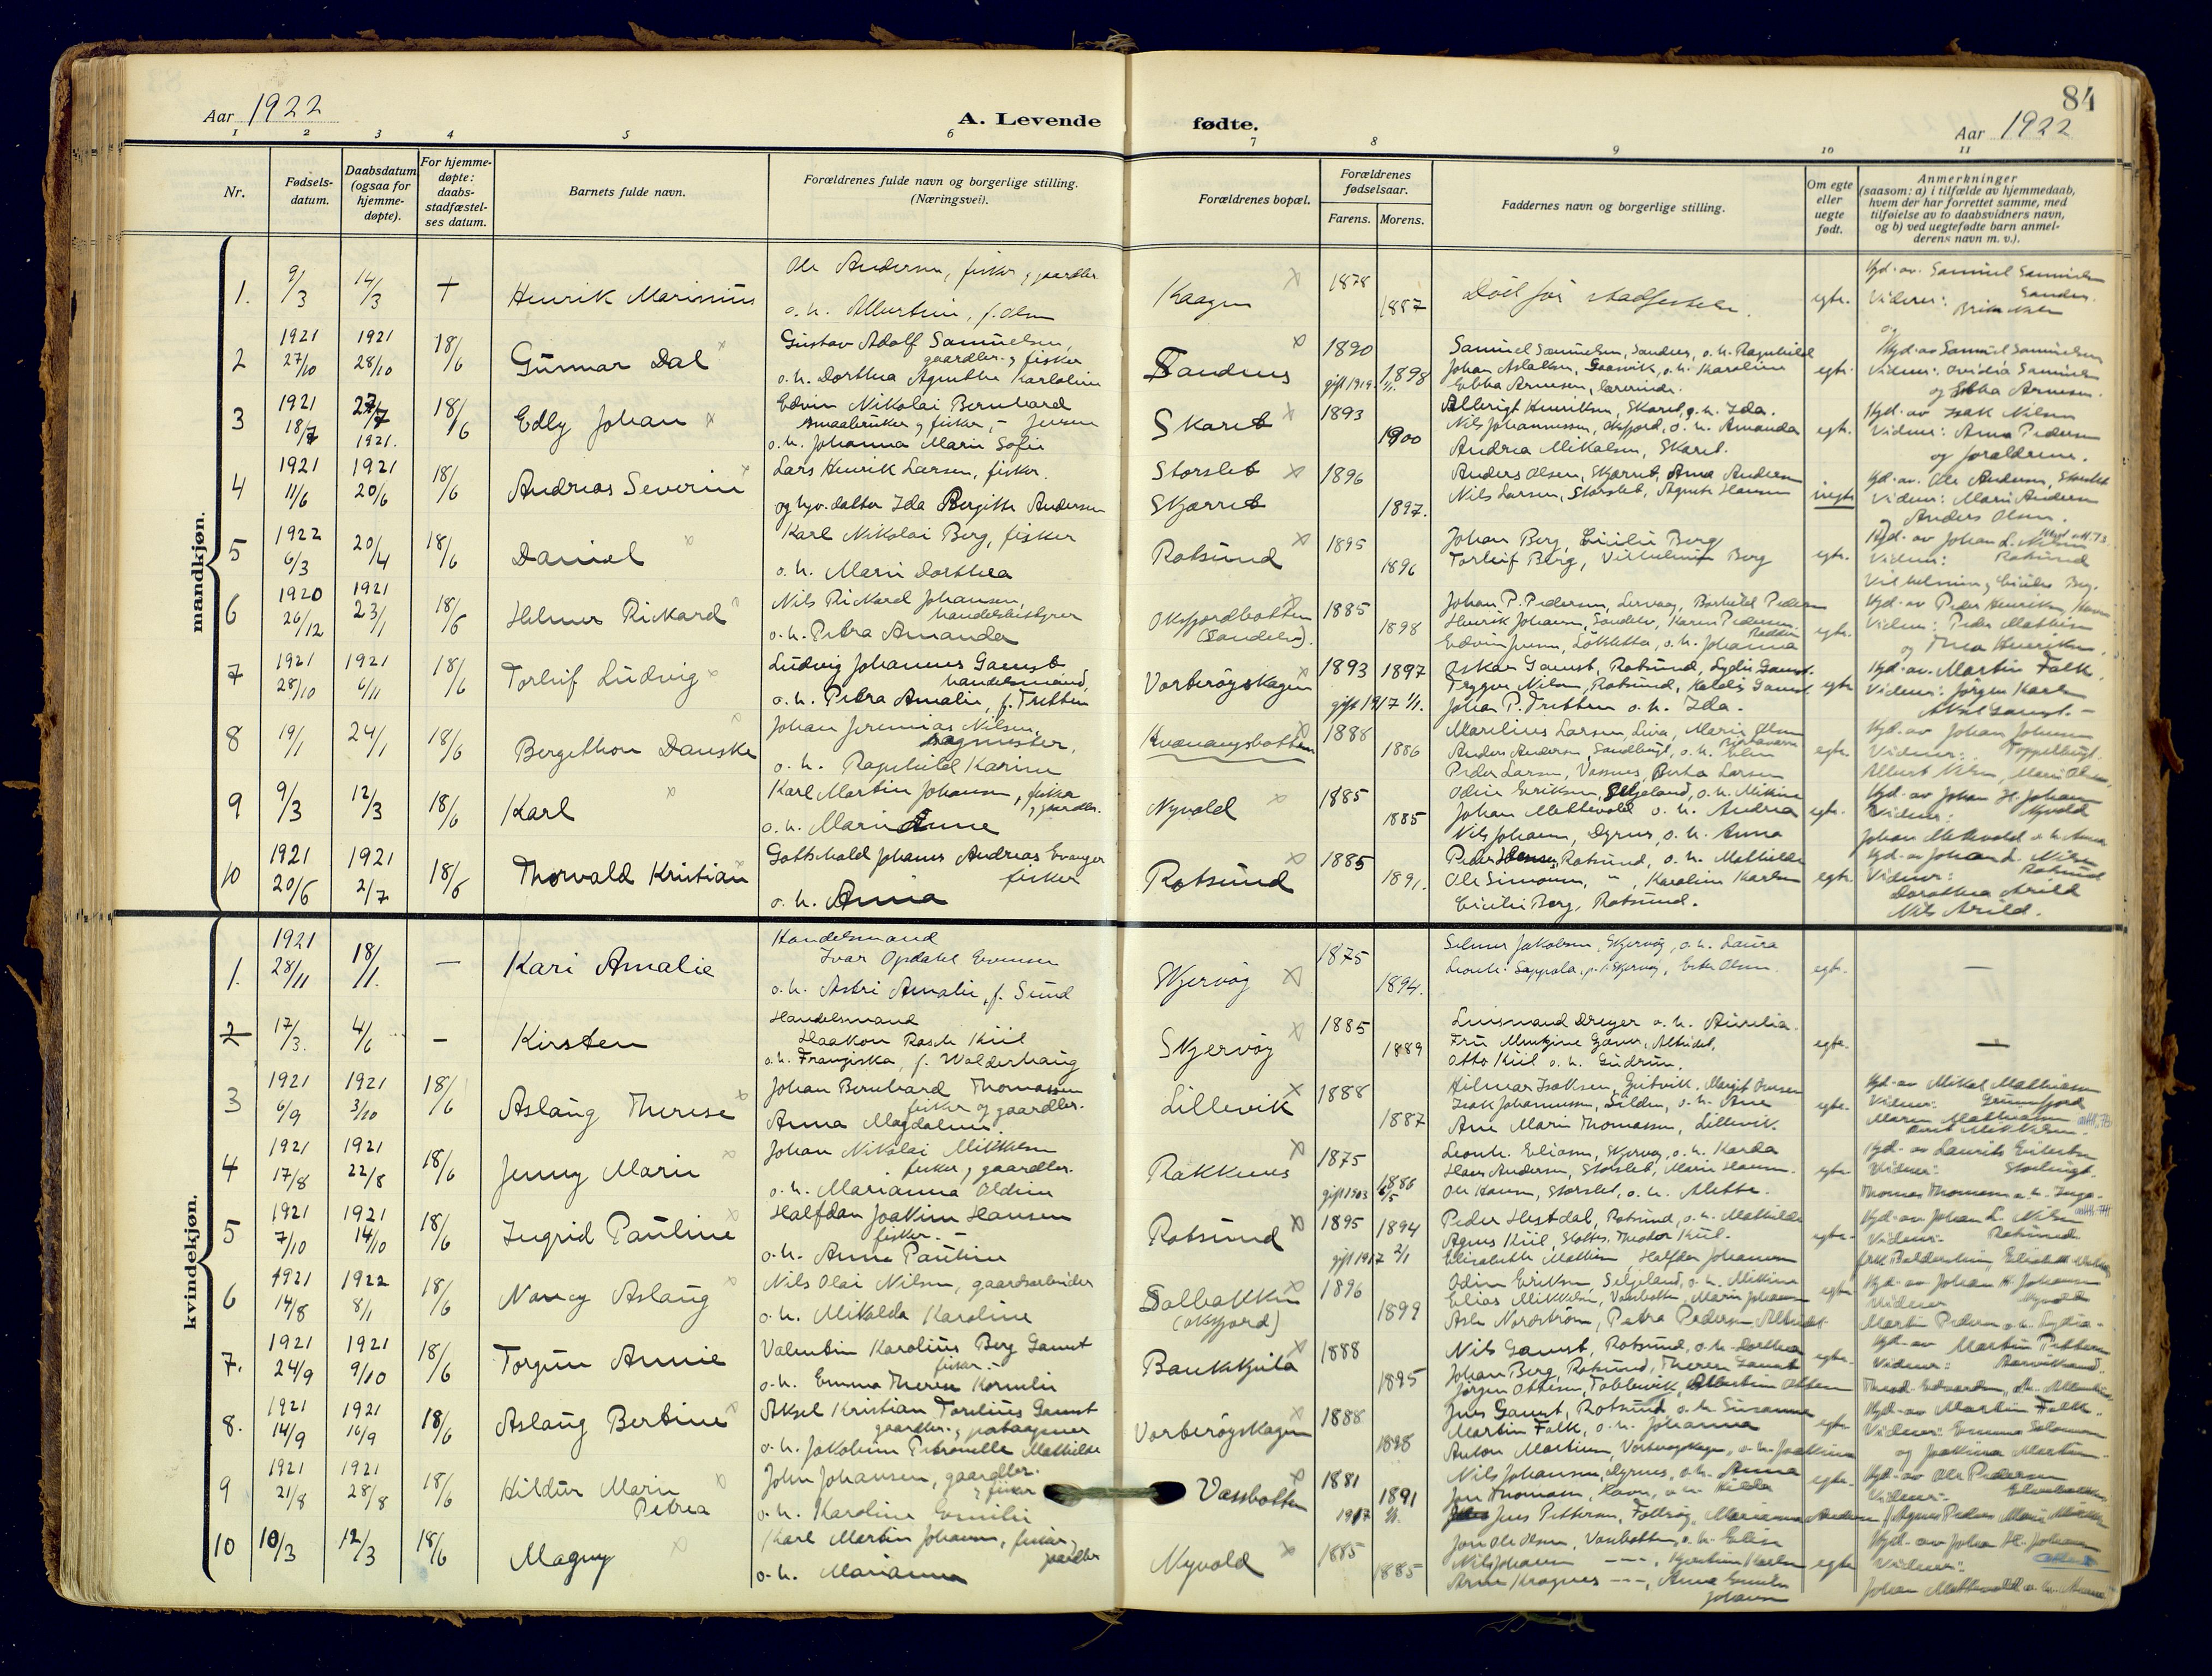 84
Aar 1922
A. Levende
fødte.
Aar 1922
1 2 3 4 5 6 7 8 9 10 11
Nr.
Fødsels-
datum.
Daabsdatum
(ogsaa for
hjemme-
døpte).
For hjemme-
døpte:
daabs-
stadfæstel-
ses datum.
Barnets fulde navn.
Forældrenes fulde navn og borgerlige stilling.
(Næringsvei).
Forældrenes bopæl.
Forældrenes
fødselsaar.
Farens. Morens.
Faddernes navn og borgerlige stilling.
Om egte
eller
uegte
født.
Anmerkninger
(saasom: a) i tilfælde av hjemmedaab,
hvem der har forrettet samme, med
tilføielse av to daabsvidners navn,
og b) ved uegtefødte barn anmel-
derens navn m. v.).
mandkjøn.
1. 9/3 14/3 + Henrik Marinius
Ole Andersen, fisker, gaardbr.
o. h. Albertine, f. Olsen
Kaagen 1878 1887
Død før egte.
Hjd. av Samuel Samuelsen
Vidner: Sandnes
2 1921 27/10 1921 28/10 18/6 Gunnar Dal
Gustav Adolf Samuelsen,
gaardbr. og fisker
o. h. Dorthea Agnethe Karoline
Sandnes 1890 1898
gift 1919
Samuel Samuelsen, Sandnes, o. h. Ragnhild
Johan Aslaksen, o. h. Karoline
Ebba Arnesen, lærerinde.
egte.
Hjd. av Samuel Samuelsen
Vidner: Ovidia Samuelsen
og Ebba Arnesen.
3 1921 18/7 27/7 1921. 18/6 Edly Johan
Edvin Nikolai Bernhard
smaabruker og fisker, Jensen
o. h. Johanna Marie Sofie
Skaret 1893 1900
Albrigt Henriksen, Skaret, o. h. Ida.
Nils Johannessen, Oksfjord, o. h. Amanda
Andrea Mikalsen, Skaret.
egte.
Hjd. av Isak Nilsen
Vidner: Anna Pedersen
og forældrene.
4 1921 11/6 1921 20/6 18/6 Andreas Severin
Lars Henrik Larsen, fisker.
og hjv. datter Ida Bergitte Andersen
Storslet
Skjærret 1896 1897.
Anders Olsen, Skjærret, Anna Andersen
Nils Larsen, Storslet, Agnete Hansen
uegte
Hjd. av Ole Andersen, Storslet
Vidner: Marie Andersen
Anders Olsen.
5 1922 6/3 20/4 18/6 Daniel
Karl Nikolai Berg, fisker
o. h. Marie Dorthea
Rotsund 1895 1896
Johan Berg, Cicilie Berg
Torleif Berg, Vilhelmine Berg
egte.
Hjd. av Johan L. Nilsen
Vidner: Rotsund
Vilhelmine, Cicilie Berg.
6 1920 26/12 1921 23/1 18/6 Helmer Rikard
Nils Rikard Johansen,
handelsbestyrer
o. h. Petra Amanda
Oksfjordbotten
(Sandelv). 1885 1898
Johan P. Pedersen, Lervaag, Borhild Pedersen
Henrik Johansen, Sandelv, Karen Pedersen.
Edvin Jensen, o. h. Johanna
egte.
Hjd. av Peder Henriksen, Havn
Vidner: Peder Mathisen
og Thea Henriksen.
7 1921 28/10 1921 6/11 18/6 Torleif Ludvig
Ludvig Johannes Gamst
handelsmand,
o. h. Petra Amalie, f. Fretten
Vorterøyskagen 1893 1897
gift 1917 1/1.
Oskar Gamst, Rotsund, Lydia Gamst.
Trygve Nilsen, Rotsund, Gamst
Johan P. Fretten o. h. Ida.
egte
Hjd. av. Martin Falk,
Vidner: Jørgen Karlsen
8 19/1 24/1 18/6 Bergethon Danske
Johan Jeremias Nilsen,
sagmester,
o. h. Ragnhild Karine
Kvænangsbotten 1888 1886
Marelius Larsen, Marie Olsen
Anders Andersen, Sandbugt, o. h. Elen
Peder Larsen, Vassnes, Berta Larsen
egte.
Hjd. av Johan Johnsen
Vidner: Toppelbugt.
Albert Nilsen, Marie Olsen.
9 9/3 12/3 18/6 Karl
Karl Martin Johansen, fisker
og gaardbr.
o. h. Marie Anne
Nyvold 1885 1885
Odin Eriksen, Selgeland, o. h. Mikine
Johan Mettevold o. h. Andrea
Nils Johansen, Dyrnes, o. h. Anna
egte.
Hjd. av Johan H. Johansen
Vidner: Nyvold
Johan Mettevold o. h. Anna
10 1921 20/6 1921 2/7 18/6 Thorvald Kristian
Gottshald Johans Andreas Evanger
fisker
o. h. Anna
Rotsund 1885 1891.
Peder Rotsund, o. h. Mathilde
Ole Simonsen, ", Karoline Karlsen
Cicilie Berg, Rotsund.
egte.
Hjd. av Johan L. Nilsen
Vidner: Rotsund
Dorothea Arild
Nils Arild.
kvindekjøn.
1. 1921 28/11 18/11. – Kari Amalie
Handelsmand
Ivar Opdahl Evensen
o. h. Astri Amalie, f. Sund
Skjervøy 1875 1894.
Selmer Jakobsen, Skjervøy, o. h. Laura
Leonh. Seppala, Skjervøy, Ester Olsen.
egte. –
2 17/3. 4/6 – Kirsten
Handelsmand
Haakon Rasch Kiil
o. h. Franziska, f. Walderhaug
Skjervøy 1885 1889
Lensmand Dreyer o. h. Aurelia.
Fru Giæver,
Otto Kiil o. h. Gudrun.
egte. –
3 1921 6/9 1921 3/10 18/6 Aslaug Therese
Johan Bernhard Thomassen
fisker og gaardbr.
Anna Magdalene
Lillevik 1888 1887
Hilmar Isaksen, Margit Iversen
Isak Johannessen, Silden, o. h. Ane
Ane Marie Thomassen, Lillevik.
egte.
Hjd. av Mikal Mathiassen
Vidner: Grunnfjord
Maren Mathiassen
4 1921 17/8 1921 22/8 18/6 Jenny Marie
Johan Nikolai Mikkelsen
fisker, gaardbr.
o. h. Marianna Oldine
Rakkenes 1875 1886
gift 1903 6/5
Leonh. Eliassen, Skjervøy, o. h. Karda
Hans Andersen, Storslet, Marie Hansen.
Ole Hansen, Storslet, o. h. Mette.
egte
Hjd. av Laurits Eilertsen
Vidner: Storbugt.
Thomas Thomassen o. h. Inga.
5 1921 7/10 1921 14/10 18/6 Ingrid Pauline
Halfdan Joakim Hansen
fisker.
o. h. Anna Pauline
Rotsund 1895 1894
gift 1917 2/1
Peder Hestdal, Rotsund, o. h. Mathilde
Agnes Kiil, Theodor Kiil.
Elisabeth Mathisen, Halfdan Johansen
egte.
Hjd. av Johan L. Nilsen
Vidner: Rotsund
6 1921 14/8 1922 8/1 18/6 Nancy Aslaug
Nils Olai Nilsen, gaardsarbeider
o. h. Mikalda Karoline
Solbakken
(Oksfjord) 1896 1899
Odin Eriksen, Selgeland, o. h. Mikine
Elias Mikkelsen, Vassbotten, Marie Johansen
Asle Nordstrøm, Petra Pedersen,
egte
Hjd. av Johan H. Johansen
Vidner Nyvold
Martin Pedersen o. h. Lydia.
7. 1921 24/9 1921 9/10 18/6 Torgun Annie
Valentin Karolius Berg Gamst
fisker.
o. h. Emma Therese Kornelie
Baukkjila 1888 1895
Nils Gamst, Rotsund, o. h. Dorthea
Johan Berg, Rotsund, Therese Gamst
Jørgen Ottesen, Tablevik, Albertine Ottesen
egte.
Hjd. av Martin Pettersen
Vidner:
8. 1921 14/9 1921 16/9 18/6 Aslaug Bertine
Aksel Kristian Torelius Gamst
gaardbr. og
o. h. Jakobine Petronelle Mathilde
Vorterøyskagen 1888 1898
Jens Gamst, Rotsund o. h. Susanna
Martin Falk, o. h. Johanna
Anton Martinsen, o. h. Joakima
egte
Hjd. av Martin Falk.
Vidner: Emma Salomonsen
og Joakima Martinsen.
9 1921 21/8 1921 28/8 18/6 Hildur Marie
Petrea
John Johansen, gaardbr.
og fisker
o. h. Karoline Emilie
Vassbotten 1881 1891
1917
Nils Johansen, Dyrnes, o. h. Anna
Jon Thomassen, Havn, o. h. Hilda
Jens Pettersen, Follesøy, Marianna Andersen
egte.
Hjd. av Ole Pedersen
Vidner:
10 10/3 12/3 18/6 Magny
Karl Martin Johansen, fisker,
gaardbr
o. h. Marianna
Nyvold 1885 1885
Jon Ole Olsen, Vassbotten, o. h. Elise
Nils Johansen –"–, Kjerstine Karlsen
Arne Kragnes –"–, Anna Emilie
Johansen
egte
Hjd. av Johan H. Johansen
Vidner:
Johan Mettevold o. h. Anna